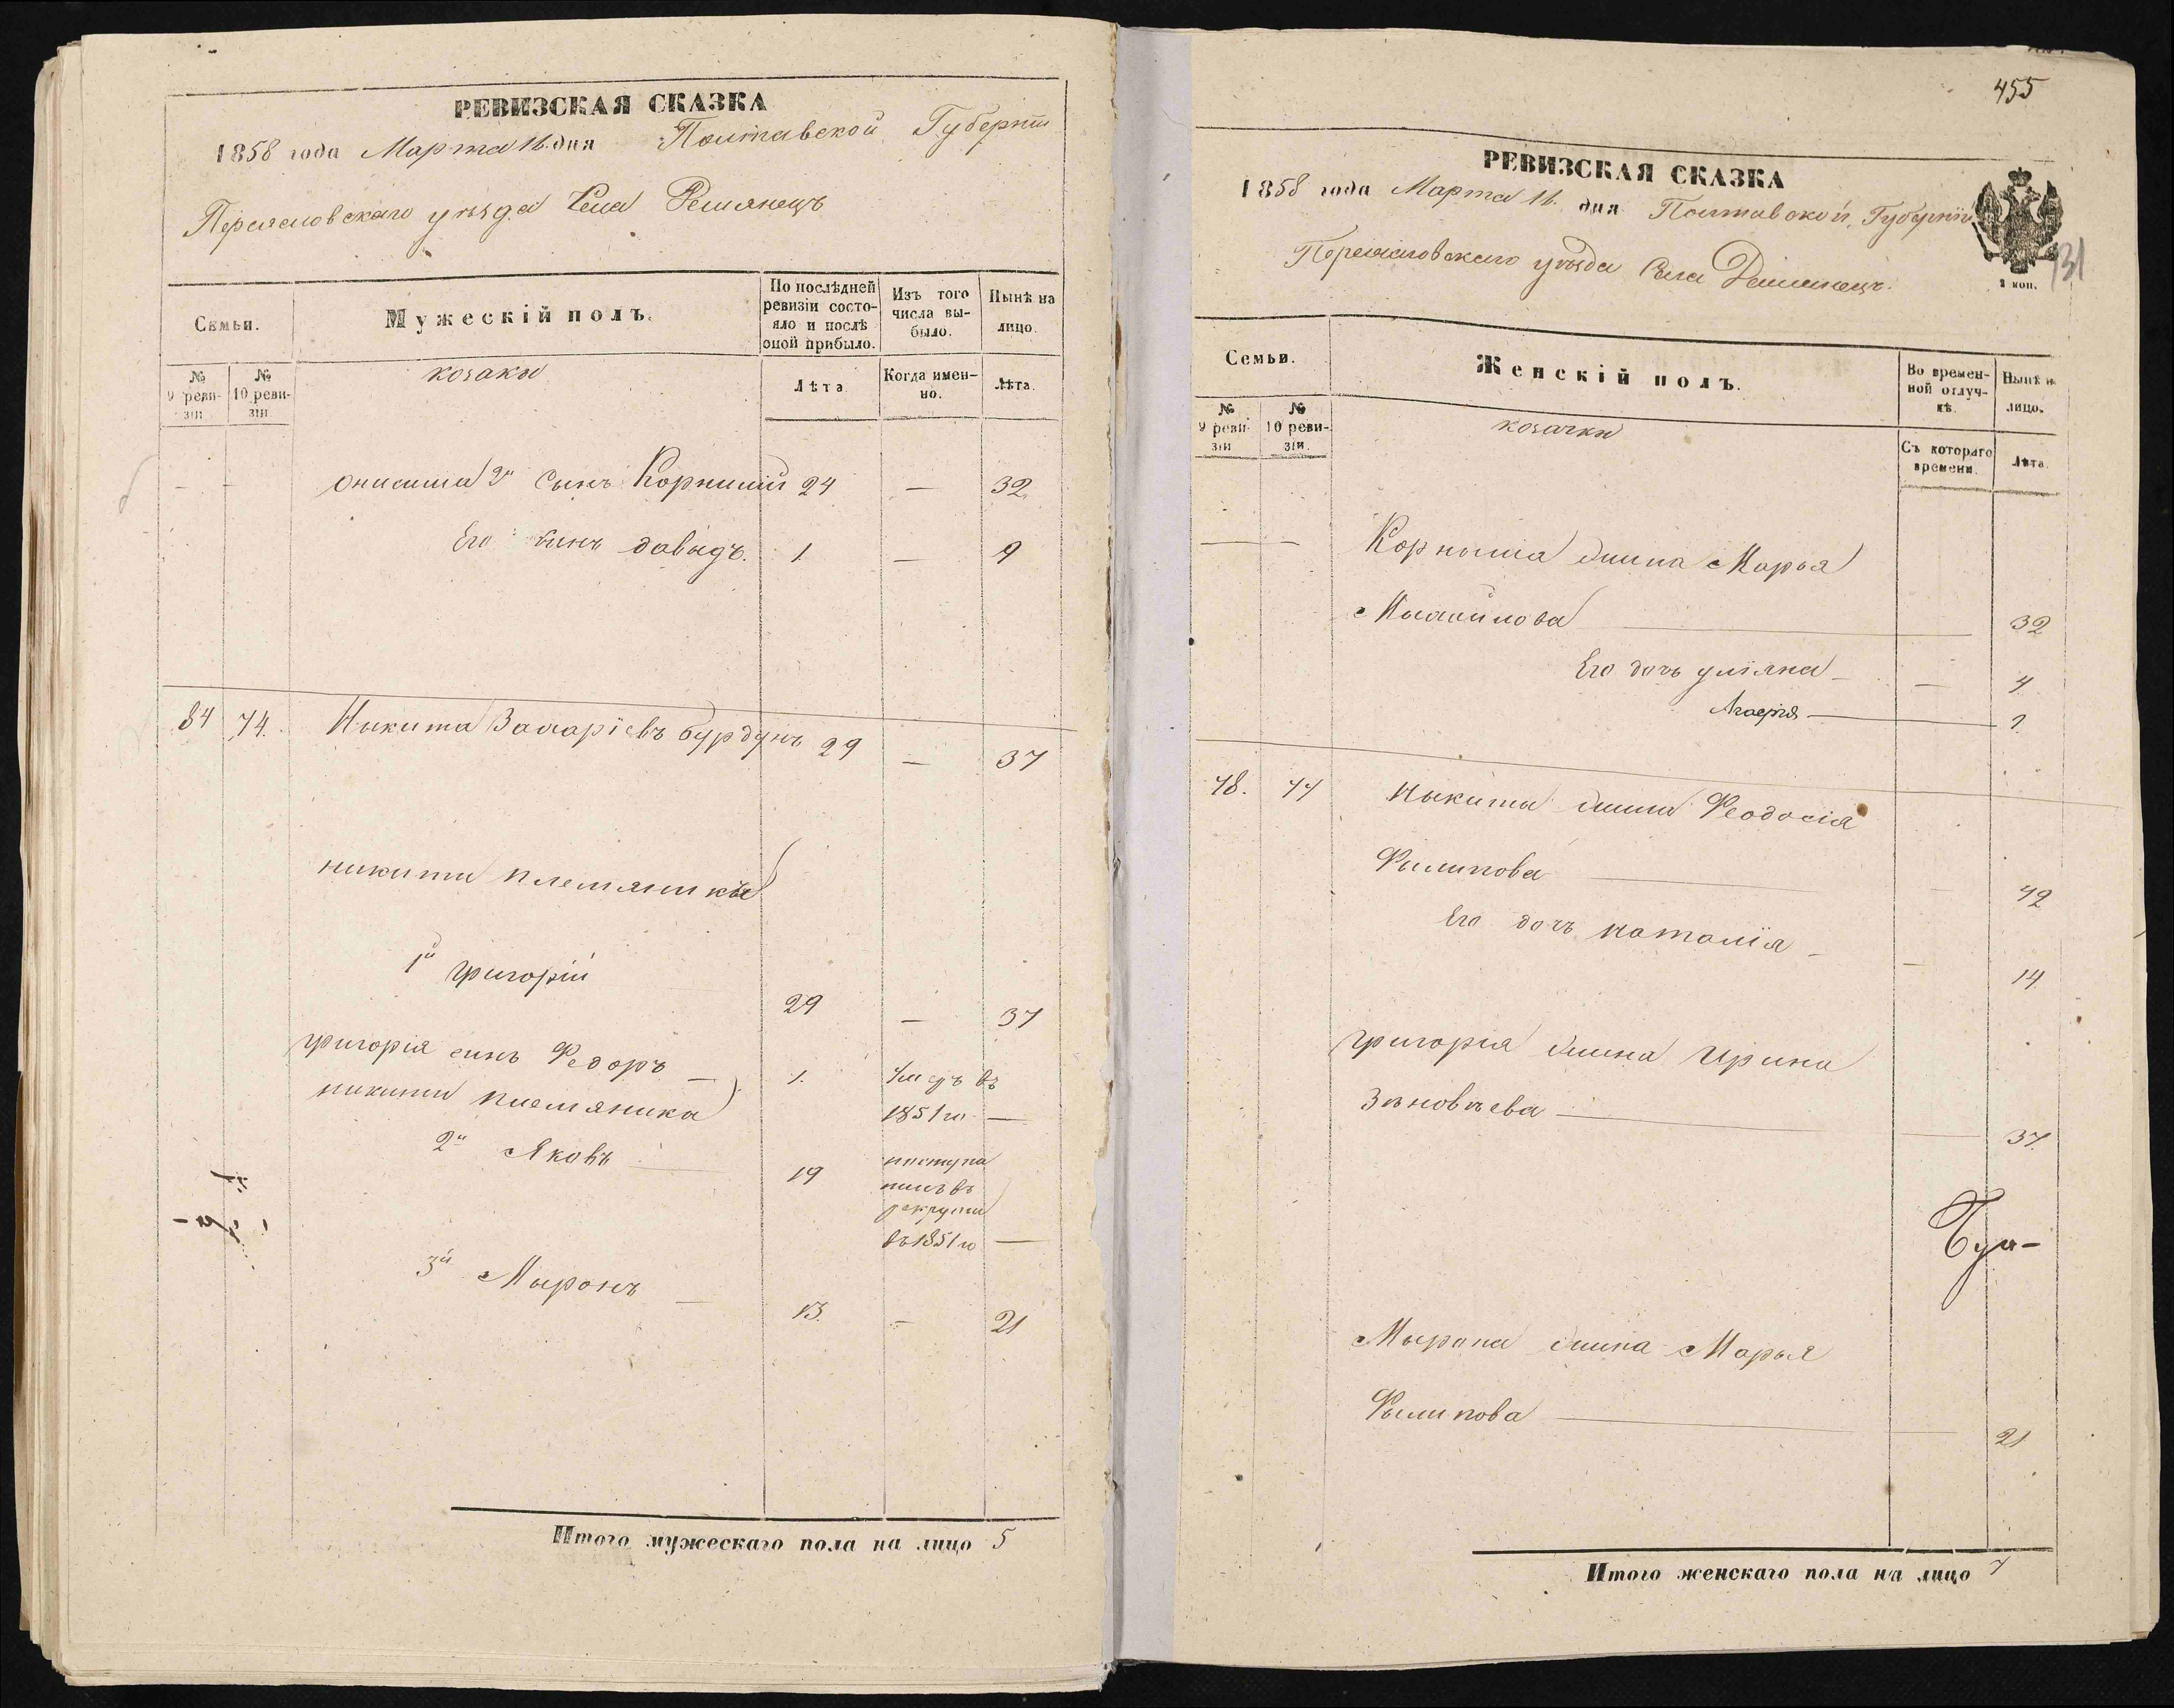 РЕВИЗСКАЯ СКАЗКА
1858 года Марта 16 дня Полтавской Губерніи
Переяславскаго уѣзда Села Демянецъ
Семьи.
Мужескій полъ.
По послѣдней ревизіи состояло и послѣ оной прибыло.
Изъ того числа выбыло.
Нынѣ на лицо.
№ 9 ревизіи
№ 10 ревизіи
козаки
Лѣта
Когда именно.
Лѣта.
— — Онисима 2й Сынъ Корнилій 24 — 32
Его сынъ давыдъ. 1 — 9
84 74. Никита Захаріевъ бурдунъ 29 — 37
никиты племяники
1й григорій 29 — 37
григорія синъ Федоръ — 1. умеръ въ
1851 го —
никиты племяника
2й Яковъ 19 поступилъ въ рекруты
въ 1851 го —
3й Миронъ — 13. — 21
Итого мужескаго пола на лицо 5
455
РЕВИЗСКАЯ СКАЗКА
1858 года Марта 16. дня Полтавской Губерніи
Переяславскаго уѣзда Села Демянецъ.
131
2 коп.
Семьи.
Женскій полъ.
Во временной отлучкѣ.
Нынѣ на лицо.
№ 9 ревизіи
№ 10 ревизіи.
козачки
Съ котораго времени.
Лѣта.
— — Корнила жина Марья
Михайлова 32
Его дочь уліяна — — 4
1
78. 74 Никиты жина Феодосія
Филипова — 42
Его дочъ наталія — — 14
григорія жина Ирина
Зѣновѣева — 37.
Мирона жина Марья
Филипова — 21
Итого женскаго пола на лицо 7